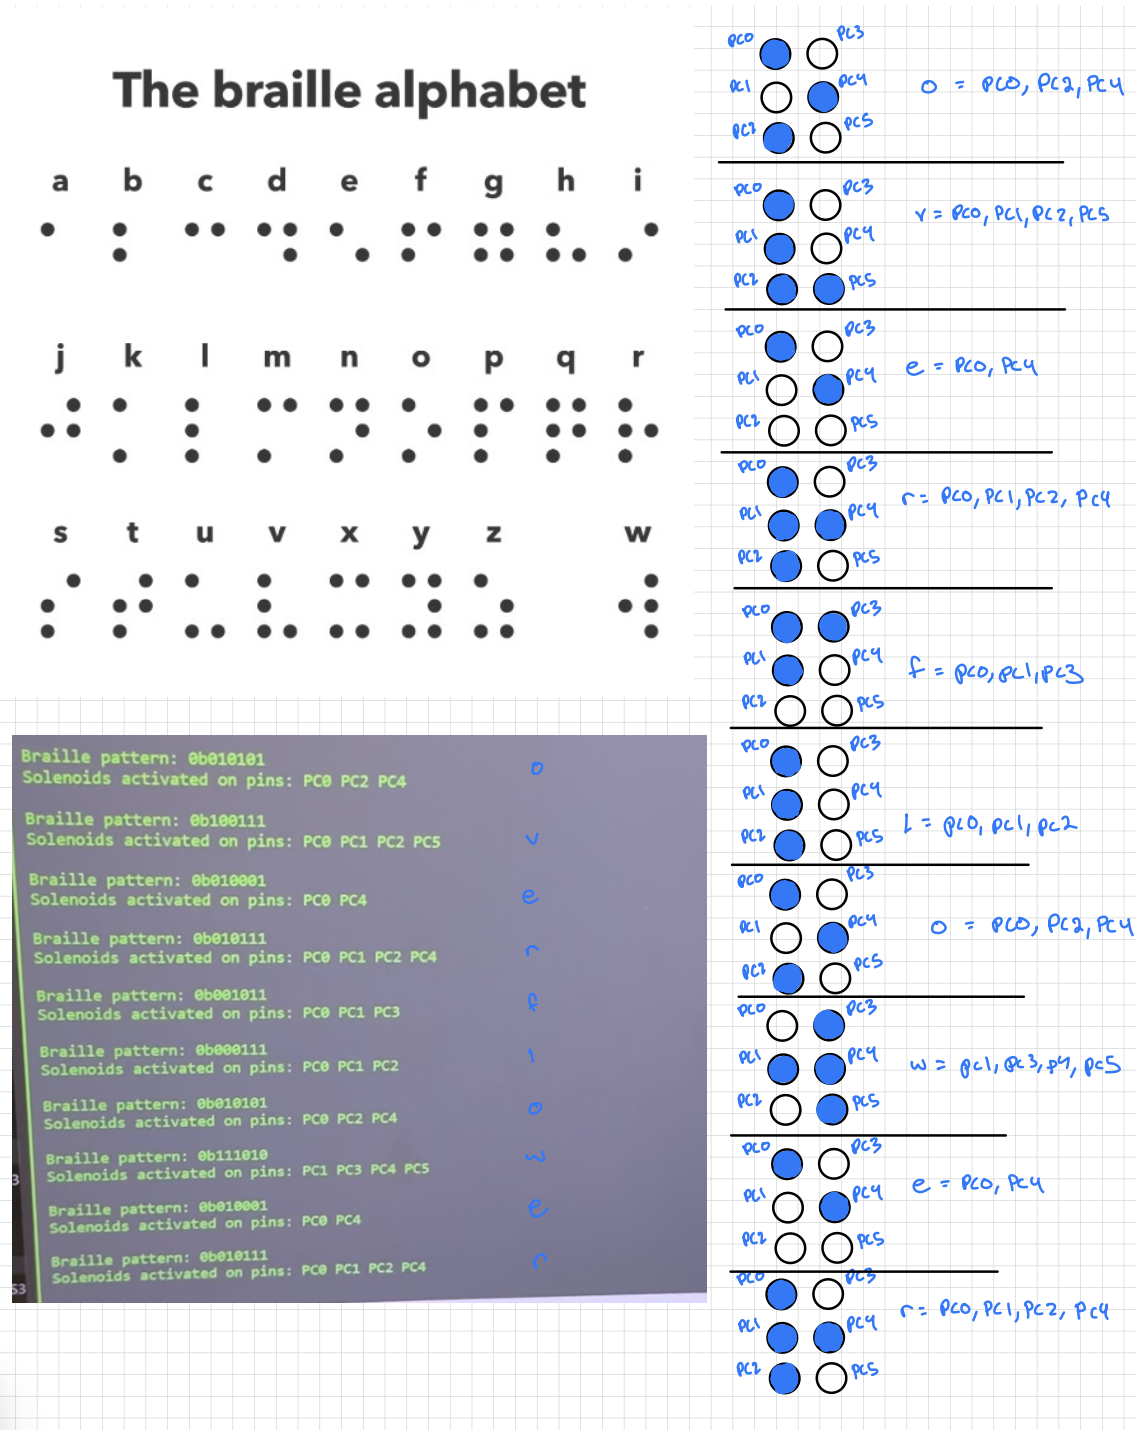 The braille alphabet
a b c d e f g h i
j k l m n o p q r
s t u v x y z w
Braille pattern: 0b010101
Solenoids activated on pins: PC0 PC2 PC4
o
Braille pattern: 0b100111
Solenoids activated on pins: PC0 PC1 PC2 PC5
v
Braille pattern: 0b010001
Solenoids activated on pins: PC0 PC4
e
Braille pattern: 0b010111
Solenoids activated on pins: PC0 PC1 PC2 PC4
r
Braille pattern: 0b001011
Solenoids activated on pins: PC0 PC1 PC3
f
Braille pattern: 0b000111
Solenoids activated on pins: PC0 PC1 PC2
l
Braille pattern: 0b010101
Solenoids activated on pins: PC0 PC2 PC4
o
Braille pattern: 0b111010
Solenoids activated on pins: PC1 PC3 PC4 PC5
w
Braille pattern: 0b010001
Solenoids activated on pins: PC0 PC4
e
Braille pattern: 0b010111
Solenoids activated on pins: PC0 PC1 PC2 PC4
r
3
S3
PC0 PC3
PC1 PC4
o = PC0, PC2, PC4
PC2 PC5
PC0 PC3
v = PC0, PC1, PC2, PC5
PC1 PC4
PC2 PC5
PC0 PC3
e = PC0, PC4
PC1 PC4
PC2 PC5
PC0 PC3
r = PC0, PC1, PC2, PC4
PC1 PC4
PC2 PC5
PC0 PC3
PC1 PC4
f = PC0, PC1, PC3
PC2 PC5
PC0 PC3
PC1 PC4
l = PC0, PC1, PC2
PC2 PC5
PC0 PC3
PC1 PC4
o = PC0, PC2, PC4
PC2 PC5
PC0 PC3
PC1 PC4
w = PC1, PC3, P4, PC5
PC2 PC5
PC0 PC3
e = PC0, PC4
PC1 PC4
PC2 PC5
PC0 PC3
r = PC0, PC1, PC2, PC4
PC1 PC4
PC2 PC5